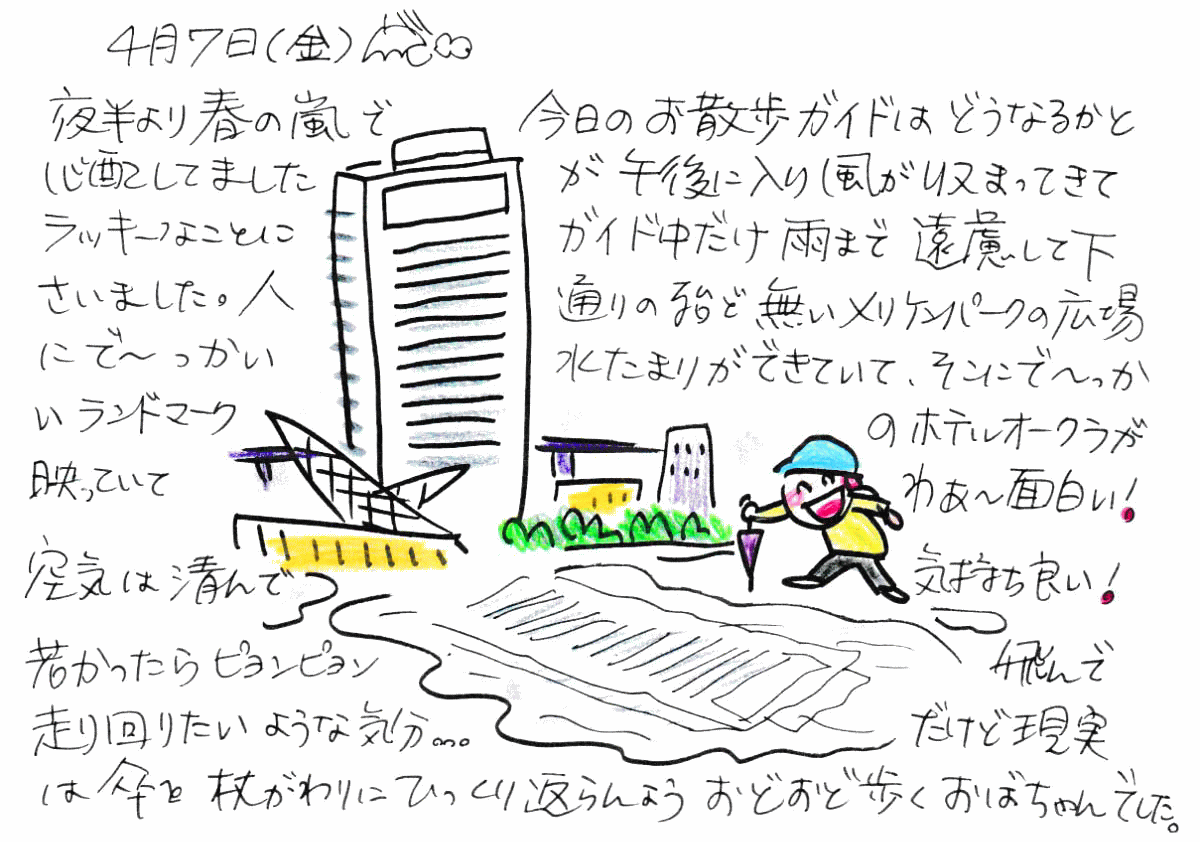 4月7日(金)
夜半より春の嵐で 今日のお散歩ガイドはどうなるかと
心配してました が午後に入り風が収まってきて
ラッキーなことに ガイド中だけ雨まで遠慮して下
さいました。人 通りの殆ど無いメリケンパークの広場
にで〜っかい 水たまりができていて、そこにで〜っか
いランドマーク のホテルオークラが
映っていて わぁ〜面白い!
空気は清んで 気持ち良い!
若かったらピョンピョン 飛んで
走り回りたいような気分… だけど現実
は傘を杖がわりにひっくり返らんよう おどおど歩くおばちゃんでした。